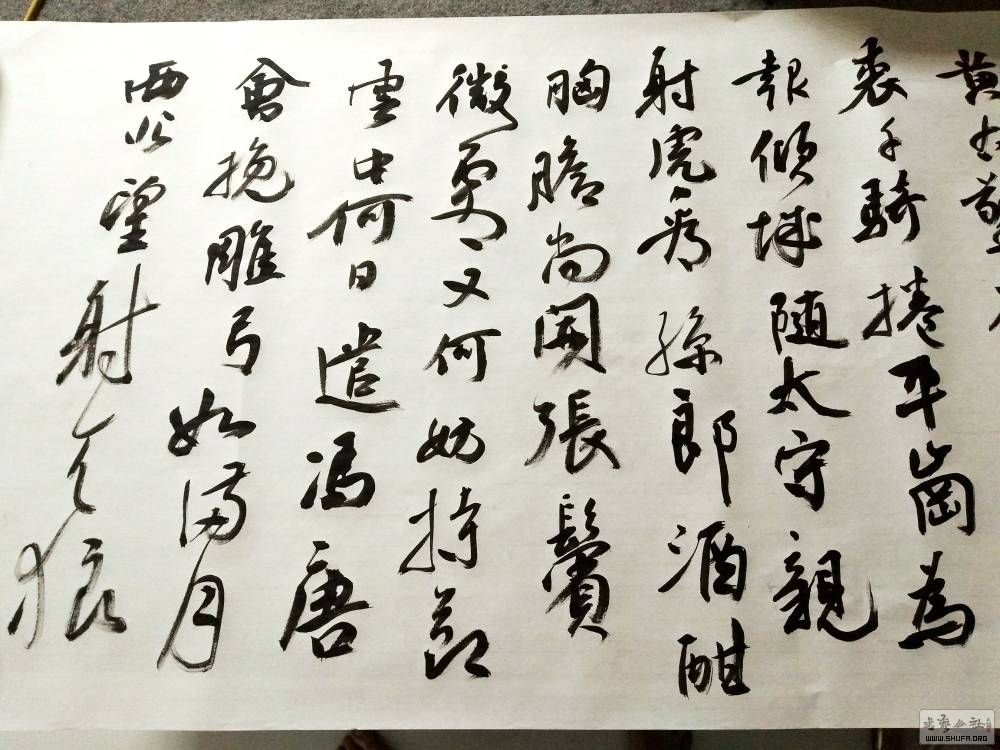 黄右擎
裘千騎捲平崗為
報傾城随太守親
射虎看孫郎酒酣
胸膽尚開張鬢
微霜又何妨持節
雲中何日遣馮唐
會挽雕弓如滿月
西北望射天狼
書藝公社
WWW.SHUFA.ORG